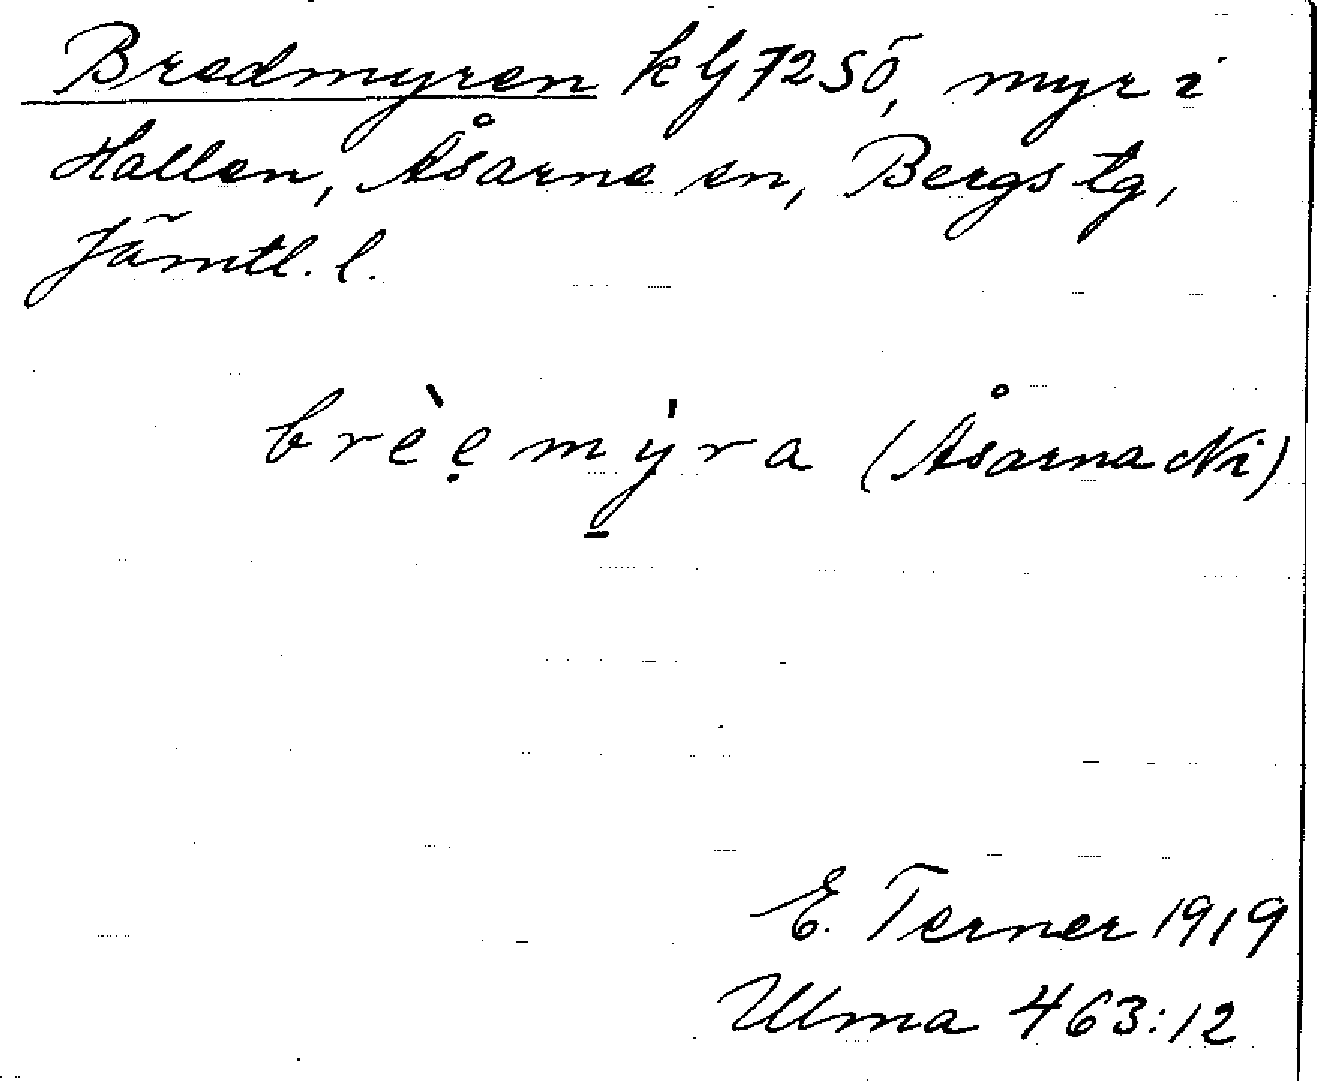 Bredmyren k Gj 72 SÖ, myr i
Hallen, Åsarne sn, Bergs tg,
Jämtl. l.
brèẹmy̱̍ra (Åsarna Ni)
E. Terner 1919
Ulma 463:12